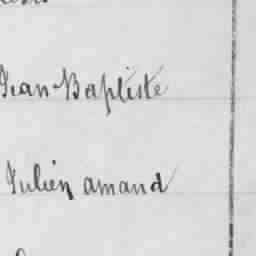 Jean Baptiste
Julien amand